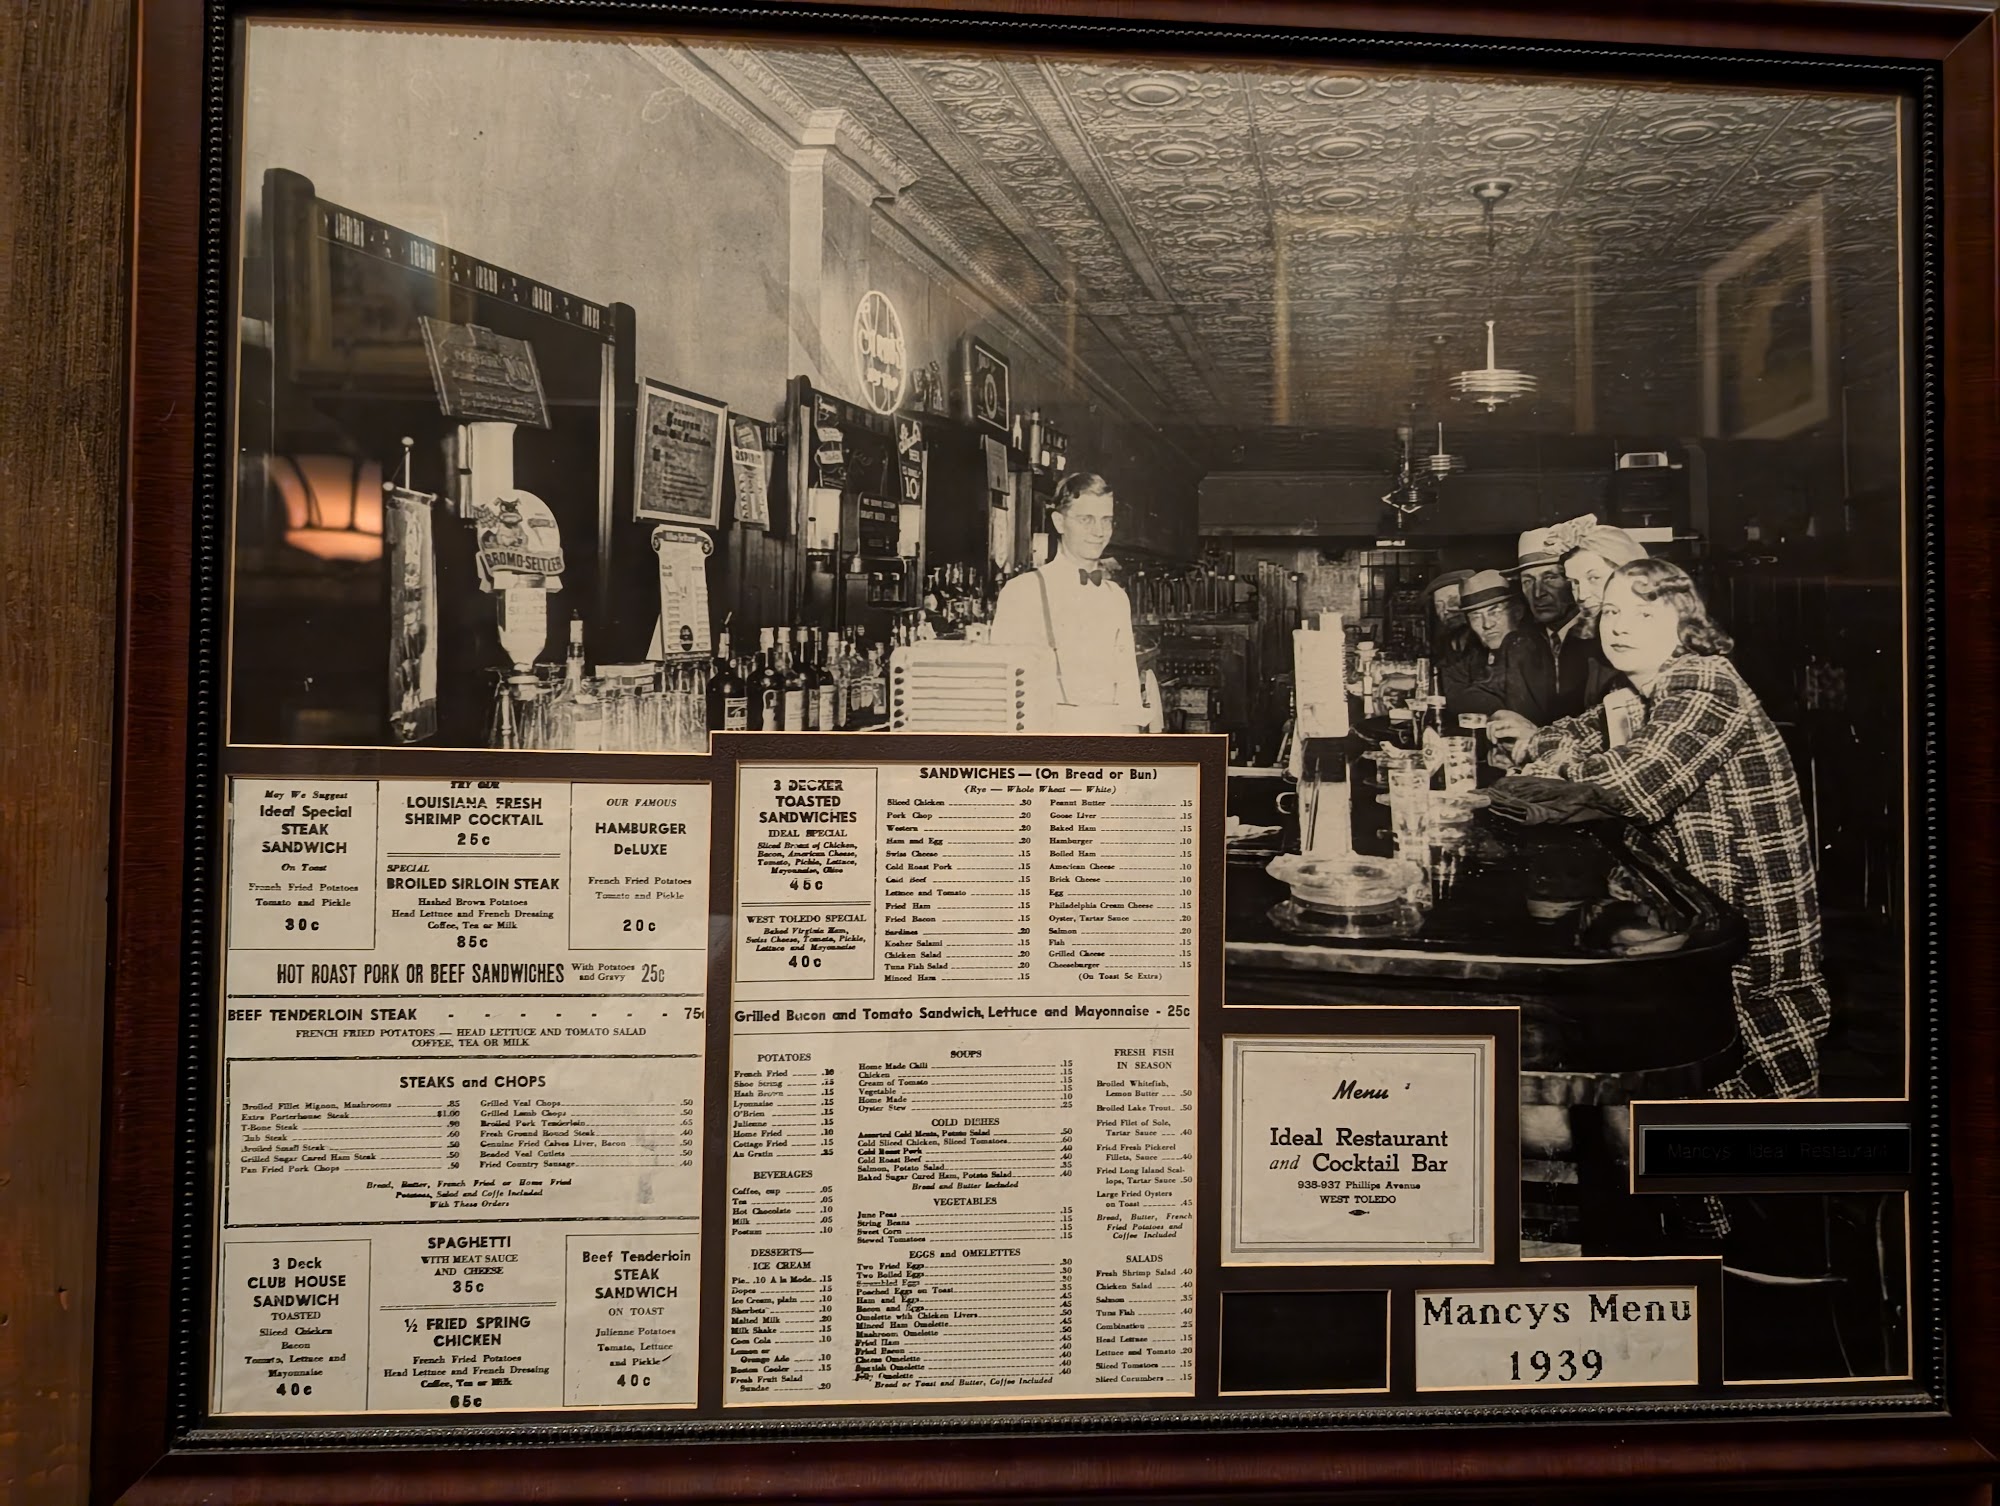 BROMO-SELTZER
Seagram
10
May We Suggest
Ideal Special
STEAK
SANDWICH
On Toast
French Fried Potatoes
Tomato and Pickle
30c
TRY OUR
LOUISIANA FRESH
SHRIMP COCKTAIL
25c
SPECIAL
BROILED SIRLOIN STEAK
Hashed Brown Potatoes
Head Lettuce and French Dressing
Coffee, Tea or Milk
85c
OUR FAMOUS
HAMBURGER
DeLUXE
French Fried Potatoes
Tomato and Pickle
20c
HOT ROAST PORK OR BEEF SANDWICHES With Potatoes and Gravy 25c
BEEF TENDERLOIN STEAK - - - - - - - 75c
FRENCH FRIED POTATOES — HEAD LETTUCE AND TOMATO SALAD
COFFEE, TEA OR MILK
STEAKS and CHOPS
Broiled Fillet Mignon, Mushrooms .85
Extra Porterhouse Steak $1.00
T-Bone Steak .90
Club Steak .60
Broiled Small Steak .50
Grilled Sugar Cured Ham Steak .50
Pan Fried Pork Chops .50
Grilled Veal Chops .50
Grilled Lamb Chops .50
Broiled Pork Tenderloin .65
Fresh Ground Round Steak .40
Genuine Fried Calves Liver, Bacon .50
Breaded Veal Cutlets .50
Fried Country Sausage .40
Bread, Butter, French Fried or Home Fried
Potatoes, Salad and Coffe Included
With These Orders
3 Deck
CLUB HOUSE
SANDWICH
TOASTED
Sliced Chicken
Bacon
Tomato, Lettuce and
Mayonnaise
40c
SPAGHETTI
WITH MEAT SAUCE
AND CHEESE
35c
½ FRIED SPRING
CHICKEN
French Fried Potatoes
Head Lettuce and French Dressing
Coffee, Tea or Milk
65c
Beef Tenderloin
STEAK
SANDWICH
ON TOAST
Julienne Potatoes
Tomato, Lettuce
and Pickle
40c
3 DECKER
TOASTED
SANDWICHES
IDEAL SPECIAL
Sliced Breast of Chicken,
Bacon, American Cheese,
Tomato, Pickle, Lettuce,
Mayonnaise, Olive
45c
WEST TOLEDO SPECIAL
Baked Virginia Ham,
Swiss Cheese, Tomato, Pickle,
Lettuce and Mayonnaise
40c
SANDWICHES — (On Bread or Bun)
(Rye — Whole Wheat — White)
Sliced Chicken .30
Pork Chop .20
Western .20
Ham and Egg .20
Swiss Cheese .15
Cold Roast Pork .15
Cold Beef .15
Lettuce and Tomato .15
Fried Ham .15
Fried Bacon .15
Sardines .20
Kosher Salami .15
Chicken Salad .20
Tuna Fish Salad .20
Minced Ham .15
Peanut Butter .15
Goose Liver .15
Baked Ham .15
Hamburger .10
Boiled Ham .15
American Cheese .10
Brick Cheese .10
Egg .10
Philadelphia Cream Cheese .15
Oyster, Tartar Sauce .20
Salmon .20
Fish .15
Grilled Cheese .15
Cheeseburger .15
(On Toast 5c Extra)
Grilled Bacon and Tomato Sandwich, Lettuce and Mayonnaise - 25c
POTATOES
French Fried .10
Shoe String .15
Hash Brown .15
Lyonnaise .15
O'Brien .15
Julienne .15
Home Fried .10
Cottage Fried .15
Au Gratin .25
BEVERAGES
Coffee, cup .05
Tea .05
Hot Chocolate .10
Milk .05
Postum .10
DESSERTS—
ICE CREAM
Pie .10 A la Mode .15
Dopes .15
Ice Cream, plain .10
Sherbets .10
Malted Milk .20
Milk Shake .15
Coca Cola .10
Lemon or
Orange Ade .10
Boston Cooler .15
Fresh Fruit Salad
Sundae .20
SOUPS
Home Made Chili .15
Chicken .15
Cream of Tomato .15
Vegetable .15
Home Made .10
Oyster Stew .25
COLD DISHES
Assorted Cold Meats, Potato Salad .50
Cold Sliced Chicken, Sliced Tomatoes .60
Cold Roast Pork .40
Cold Roast Beef .40
Salmon, Potato Salad .35
Baked Sugar Cured Ham, Potato Salad .40
Bread and Butter Included
VEGETABLES
June Peas .15
String Beans .15
Sweet Corn .15
Stewed Tomatoes .15
EGGS and OMELETTES
Two Fried Eggs .30
Two Boiled Eggs .30
Scrambled Eggs .30
Poached Eggs on Toast .35
Ham and Eggs .45
Bacon and Eggs .45
Omelette with Chicken Livers .50
Minced Ham Omelette .45
Mushroom Omelette .50
Fried Ham .45
Fried Bacon .40
Cheese Omelette .40
Spanish Omelette .40
Jelly Omelette .40
Bread or Toast and Butter, Coffee Included
FRESH FISH
IN SEASON
Broiled Whitefish,
Lemon Butter .50
Broiled Lake Trout .50
Fried Filet of Sole,
Tartar Sauce .40
Fried Fresh Pickerel
Fillets, Sauce .40
Fried Long Island Scal-
lops, Tartar Sauce .50
Large Fried Oysters
on Toast .45
Bread, Butter, French
Fried Potatoes and
Coffee Included
SALADS
Fresh Shrimp Salad .40
Chicken Salad .40
Salmon .35
Tuna Fish .40
Combination .25
Head Lettuce .15
Lettuce and Tomato .20
Sliced Tomatoes .15
Sliced Cucumbers .15
Menu
Ideal Restaurant
and Cocktail Bar
938-937 Phillips Avenue
WEST TOLEDO
Mancys Ideal Restaurant
Mancys Menu
1939